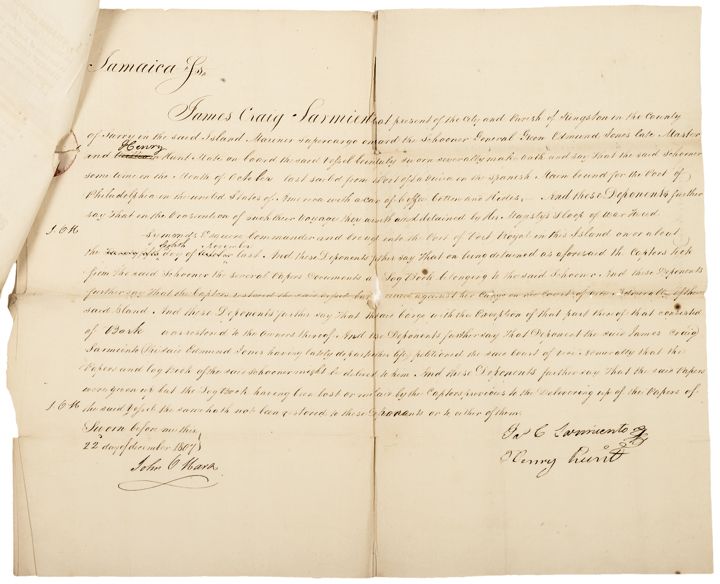 Jamaica Ss.
James Craig Sarmiento at present of the City and Parish of Kingston in the County
of Surry in the said Island Mariner Supercargo onboard the Schooner General Green Edmund Jones late Master
Henry
and Hunt Mate on board the said Vessel being duly Sworn severally make oath and say that the said Schooner
some time in the Month of October last sailed from Port of on the Spanish Main bound for the Port of
Philadelphia in the united States of America with a Cargo of Coffee Cotton and Hides, And these Deponents further
say That in the Prosecution of such their Voyage they were met with and detained by His Majestys Sloop of War
J. O H Symonds Esquire Commander and brought into the Port of Port Royal in this Island on or about
Eighth November
the day of last And these Deponents further say That on being detained as aforesaid the Captors took
from the said Schooner the several Papers Documents and Log Book belonging to the said Schooner And these Deponents
further say That the Captors restored the said Vessel but against her Cargo in the Court of Vice Admiralty of the
said Island And these Deponents further say That the said Cargo with the Exception of that part thereof that consisted
of Bark was restored to the owners thereof. And these Deponents further say That Deponent the said James Craig
Sarmiento the said Edmund Jones having lately departed this life, petitioned the said Court of Vice Admiralty that the
Papers and Log Book of the said Schooner might be delivered to him And these Deponents further say That the said Papers
were given up but the Log Book having been lost or mislaid by the Captors previous to the Delivering up of the Papers of
J. O H the said Vessel the same hath not been restored to these Deponents or to either of them
Sworn before me this
22 day of december 1807
John O Hara
Ja C Sarmiento
Henry Hunt